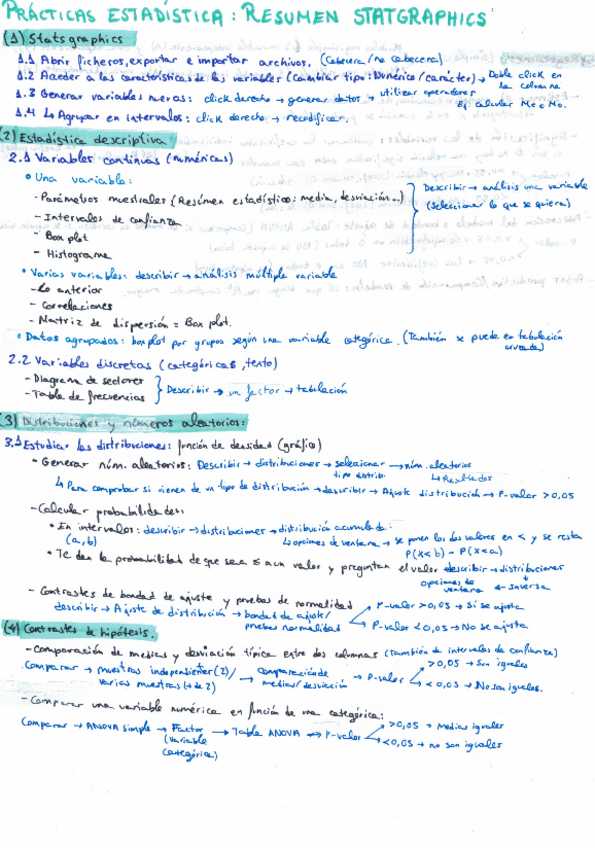 PRÁCTICAS ESTADÍSTICA: RESUMEN STATGRAPHICS
(1) Statsgraphics
1.1 Abrir ficheros, exportar e importar archivos. (Cabecera/no cabecera)
1.2 Acceder a las características de las variables (cambiar tipo: Numérico/carácter) → Doble click en la columna
1.3 Generar variables nuevas: click derecho → generar datos → utilizar operadores
Ej calcular Me o Mo.
1.4 ↳ Agrupar en intervalos: click derecho → recodificar.
(2) Estadística descriptiva
2.1 Variables continuas (numéricas)
• Una variable:
- Parámetros muestrales (Resúmen estadístico: media, desviación...)
- Intervalos de confianza
- Box plot
- Histograma
Describir → análisis una variable
(Seleccionar lo que se quiera)
• Varias variables: describir → análisis múltiple variable
- Lo anterior
- Correlaciones
- Matriz de dispersión = Box plot.
• Datos agrupados: box plot por grupos según una variable categórica. (También se puede en tabulación cruzada)
2.2 Variables discretas (categóricas, texto)
- Diagrama de sectores
- Tabla de frecuencias
Describir → un factor → tabulación
(3) Distribuciones y números aleatorios:
3.1 Estudiar las distribuciones: función de densidad (gráfico)
• Generar núm. aleatorios: Describir → distribuciones → seleccionar tipo distrib. → núm. aleatorios
↳ Resultados
↳ Para comprobar si vienen de un tipo de distribución → describir → Ajuste distribución → P-valor > 0,05
- Calcular probabilidades:
• En intervalos: describir → distribuciones → distribución acumulada:
(a,b) ↳ opciones de ventana → se ponen los dos valores en < y se resta
P(x<b) - P(x<a)
• Te dan la probabilidad de que sea ≤ a un valor y preguntan el valor describir → distribuciones
opciones de ventana ← Inversa
- Contrastes de bondad de ajuste y pruebas de normalidad
describir → Ajuste de distribución → bondad de ajuste/ pruebas normalidad
P-valor > 0,05 → Si se ajusta
P-valor < 0,05 → No se ajusta
(4) Contrastes de hipótesis.
- Comparación de medias y desviación típica entre dos columnas (También de intervalos de confianza)
Comparar → muestras independientes (2)/ varias muestras (+ de 2) → comparación de medias/desviación → P-valor
> 0,05 → Son iguales
< 0,05 → No son iguales.
- Comparar una variable numérica en función de una categórica:
Comparar → ANOVA simple → Factor (variable categórica) → Tabla ANOVA → P-valor
> 0,05 → Medias iguales
< 0,05 → no son iguales